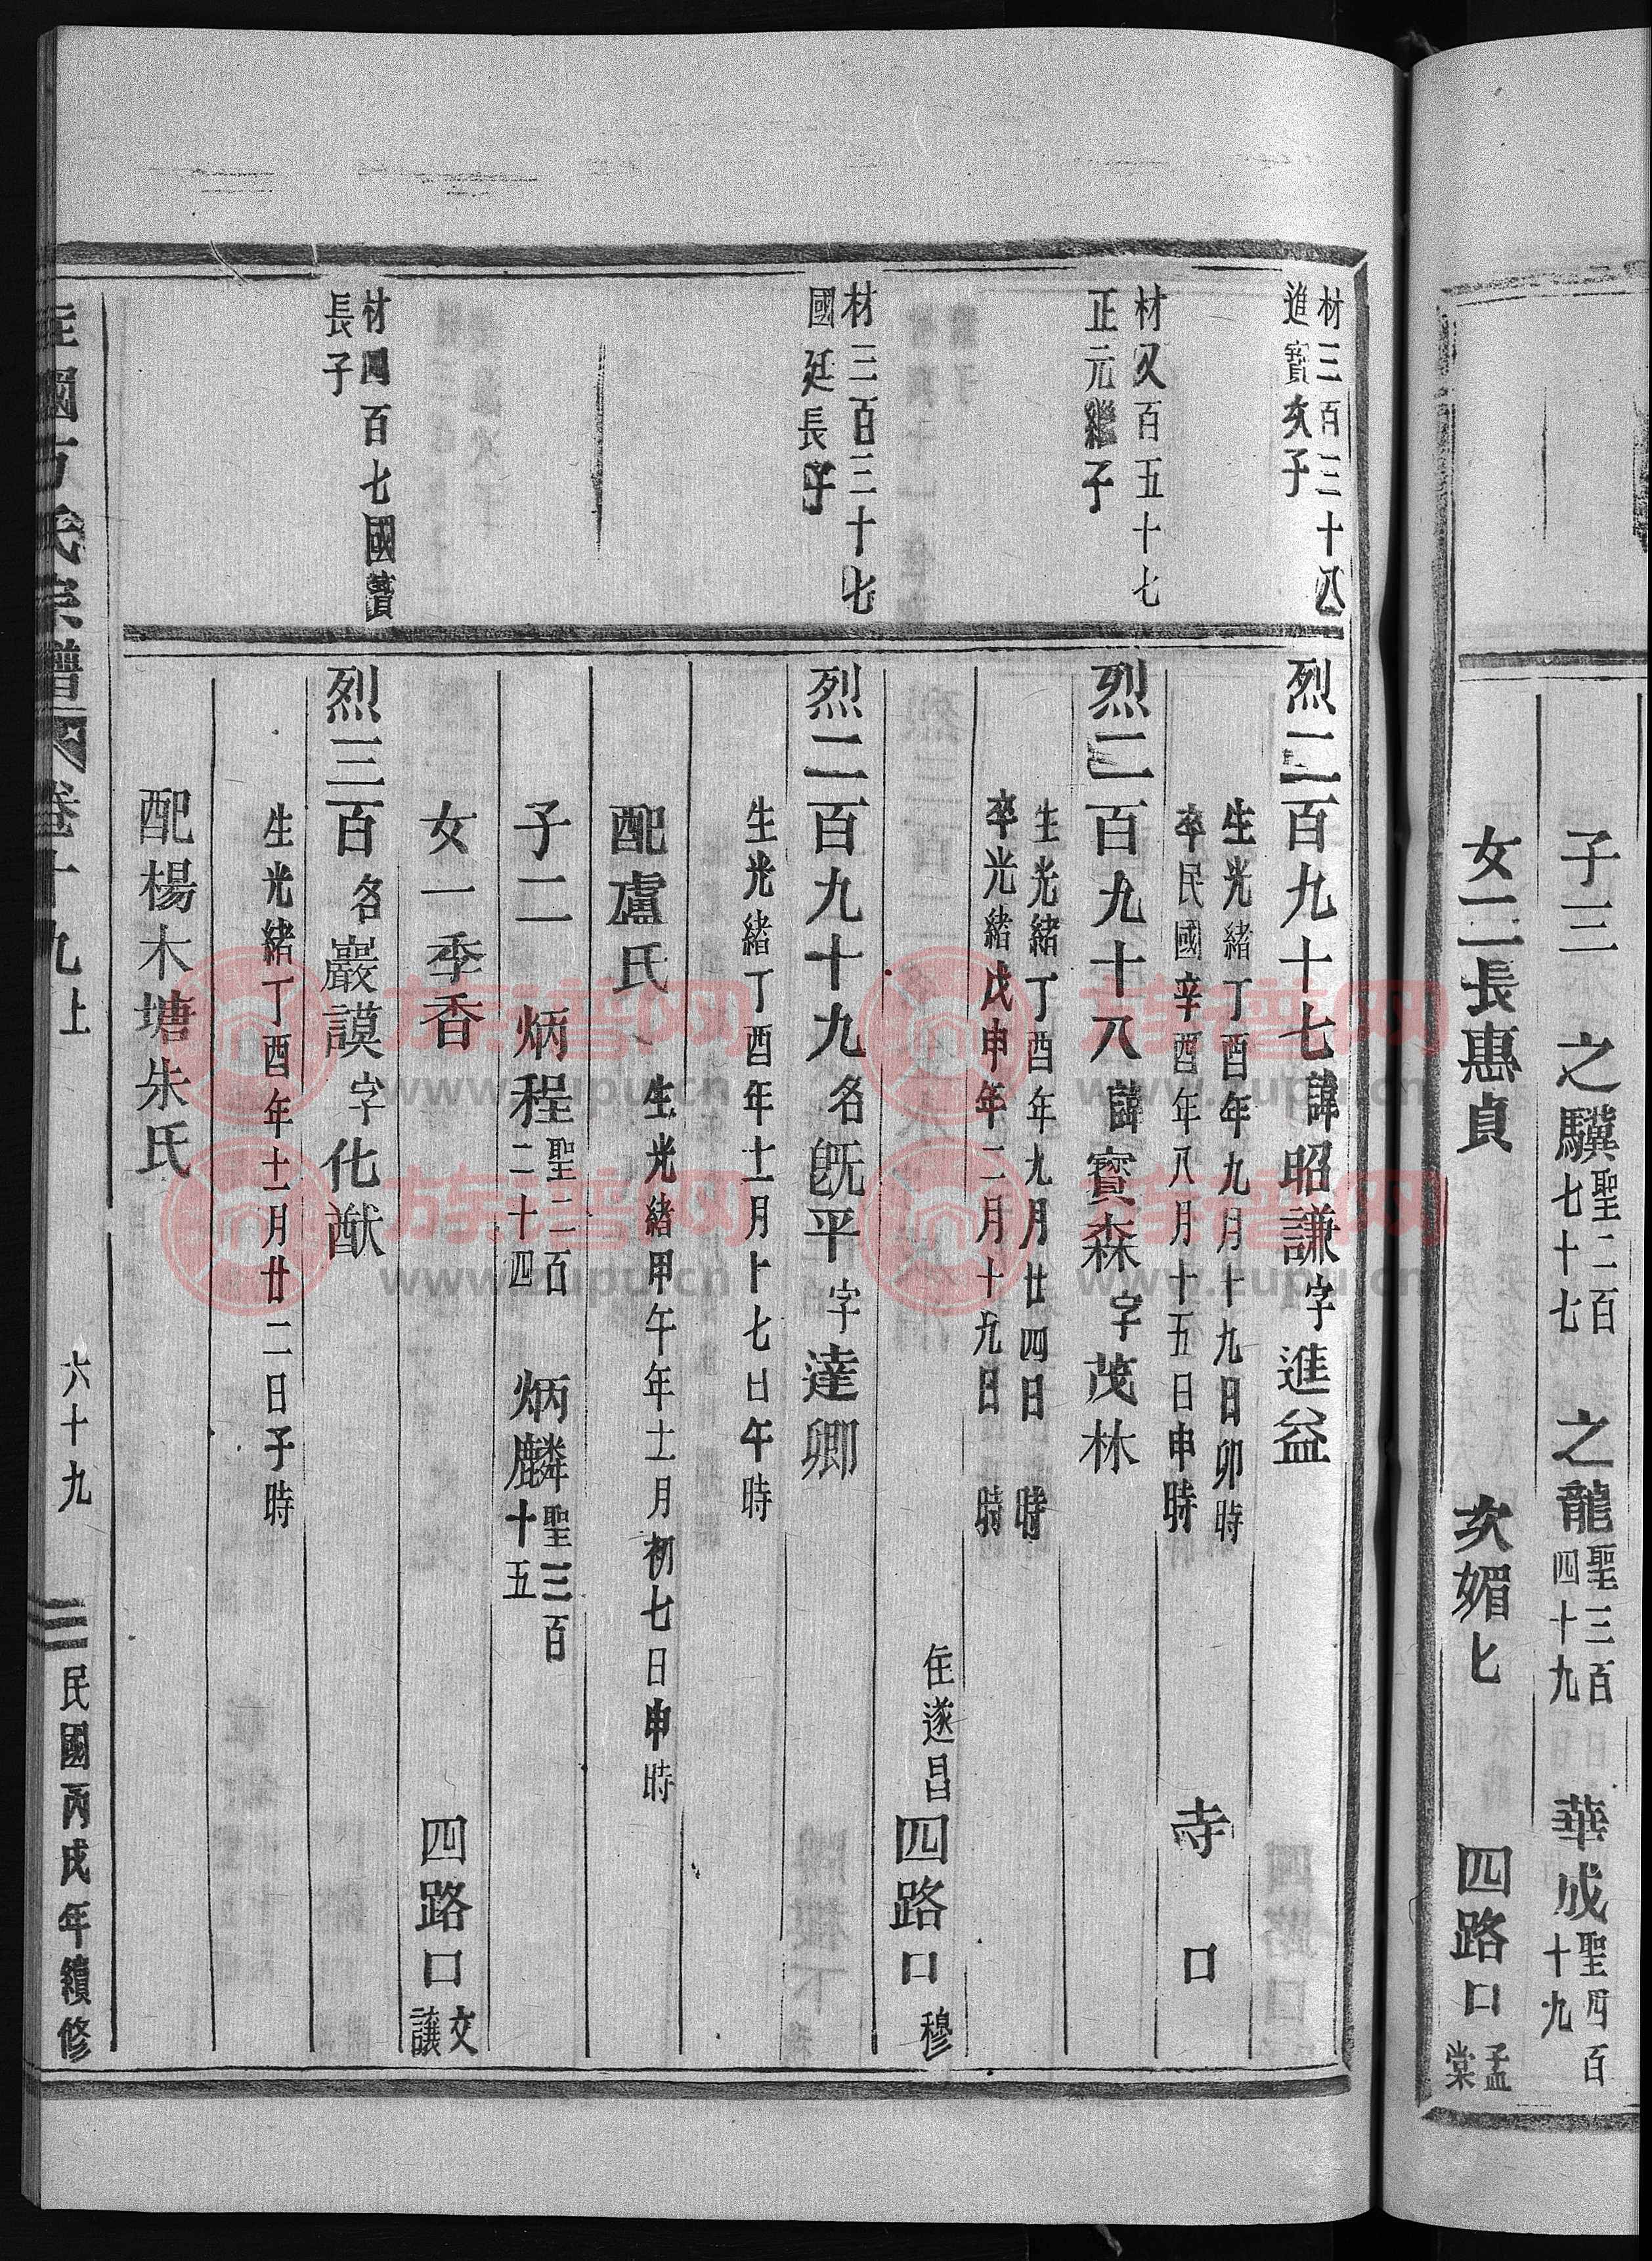 子三　之驥聖二百七十七　之龍聖三百四十九　華成聖四百十九
女二長惠貞　次媚匕　四路口孟棠
材三百三十八
進寶次子
烈二百九十七諱昭謙字進益
生光緒丁酉年九月十九日卯時
卒民國辛酉年八月十五日申時
寺口
材又百五十七
正元繼子
烈二百九十八諱寶森字茂林
生光緒丁酉年九月廿四日　時
卒光緒戊申年二月十九日　時
住遂昌　四路口穆
材三百三十七
國廷長子
烈二百九十九名旣平字達卿
生光緒丁酉年十一月十七日午時
配盧氏　生光緒甲午年十二月初七日申時
子二　炳程聖二百二十四　炳麟聖三百十五
女一季香　四路口文議
材四百七國贊
長子
烈三百名巖謨字化猷
生光緒丁酉年十一月廿二日子時
配楊木塘朱氏
國方氏宗譜　卷十九上　六十九　民國丙戌年續修
族譜网
www.zupu.cn
族譜网
www.zupu.cn
族譜网
www.zupu.cn
族譜网
www.zupu.cn